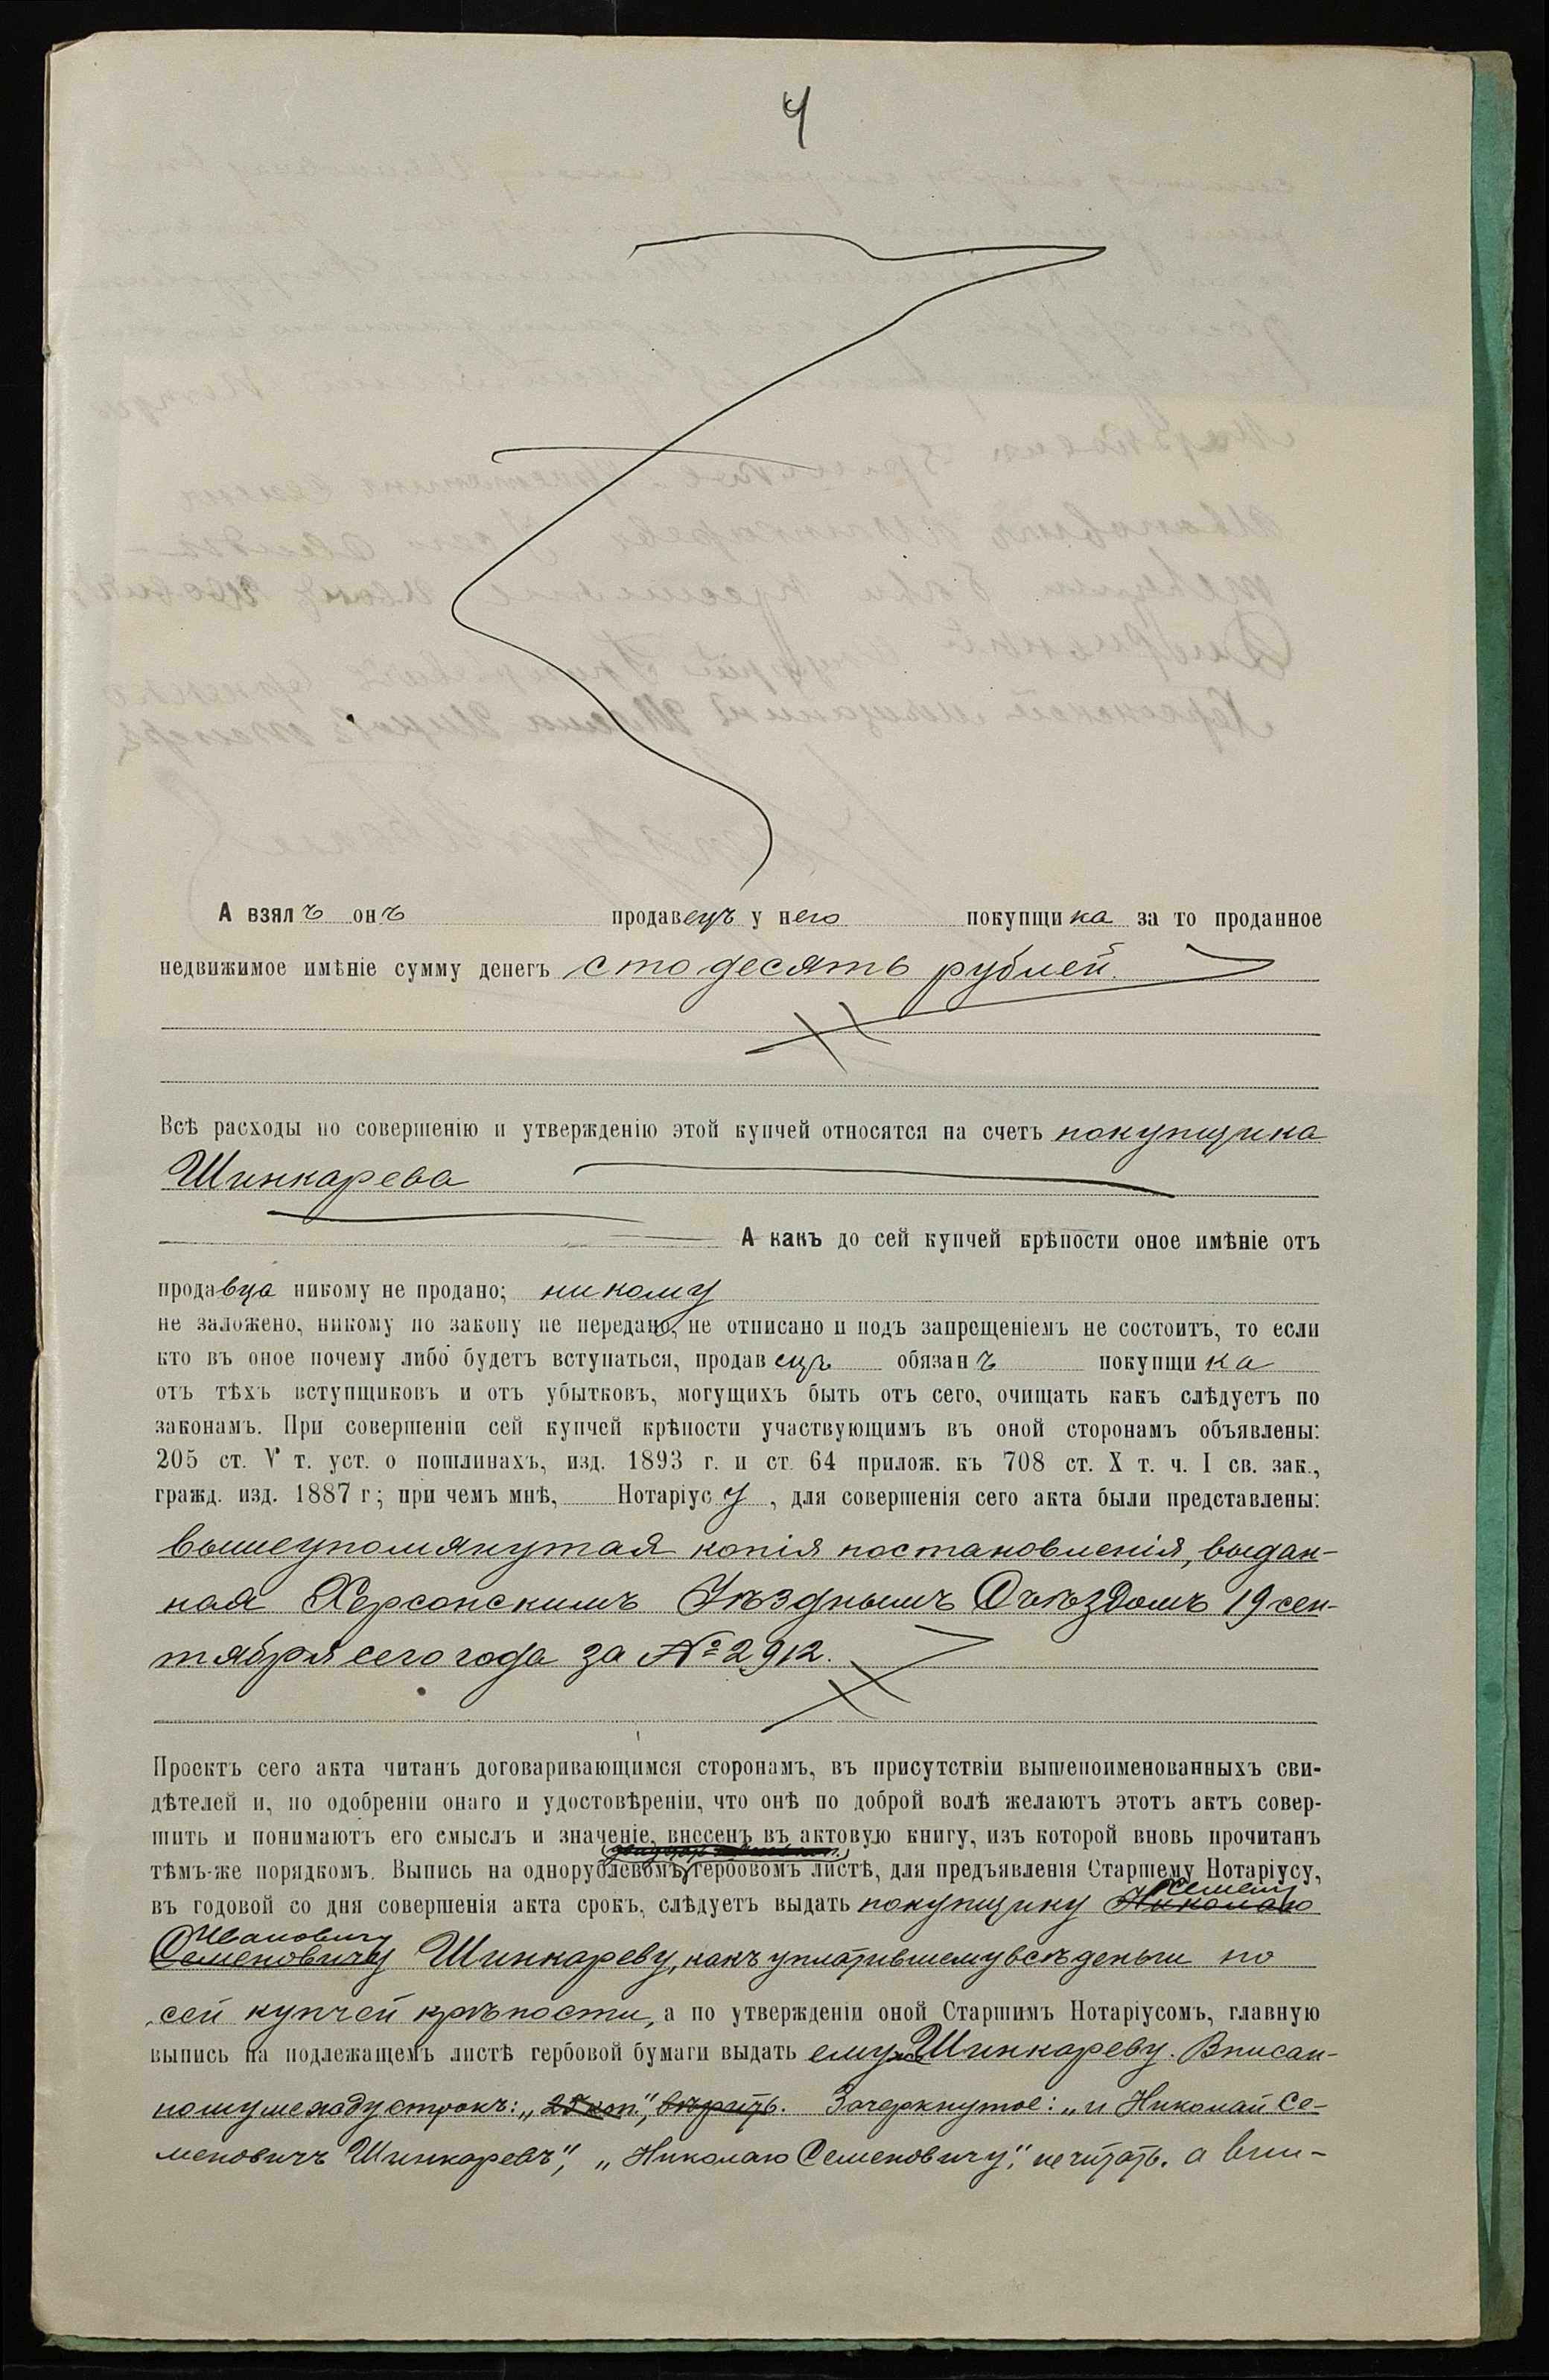 4
А взялъ онъ продавецъ у него покупщика за то проданное
недвижимое имѣніе сумму денегъ сто десять рублей.
Всѣ расходы по совершенію и утвержденію этой купчей относятся на счетъ покупщика
Шинкарева
А какъ до сей купчей крѣпости оное имѣніе отъ
продавца никому не продано; никому
не заложено, никому по закону не передано, не отписано и подъ запрещеніемъ не состоитъ, то если
кто въ оное почему либо будетъ вступаться, продавецъ обязанъ покупщика
отъ тѣхъ вступщиковъ и отъ убытковъ, могущихъ быть отъ сего, очищать какъ слѣдуетъ по
законамъ. При совершеніи сей купчей крѣпости участвующимъ въ оной сторонамъ объявлены:
205 ст. V т. уст. о пошлинахъ, изд. 1893 г. и ст. 64 прилож. къ 708 ст. X т. ч. I св. зак.,
гражд. изд. 1887 г; при чемъ мнѣ, Нотаріусу, для совершенія сего акта были представлены:
вышеупомянутая копія постановленія, выдан-
ная Херсонскимъ Уѣзднымъ Съѣздомъ 19 сен-
тября сего года за № 2912.
Проектъ сего акта читанъ договаривающимся сторонамъ, въ присутствіи вышепоименованныхъ сви-
дѣтелей и, по одобреніи онаго и удостовѣреніи, что онѣ по доброй волѣ желаютъ этотъ актъ совер-
шить и понимаютъ его смыслъ и значеніе, внесенъ въ актовую книгу, изъ которой вновь прочитанъ
тѣмъ-же порядкомъ. Выпись на однорублевомъ гербовомъ листѣ, для предъявленія Старшему Нотаріусу,
Семену
въ годовой со дня совершенія акта срокъ, слѣдуетъ выдать покупщику Николаю
Ивановичу
Семеновичу Шинкареву, какъ уплатившему всѣ деньги по
сей купчей крѣпости, а по утвержденіи оной Старшимъ Нотаріусомъ, главную
выпись на подлежащемъ листѣ гербовой бумаги выдать ему Шинкареву. Вписан-
ному между строкъ: „25 коп.", вѣрить. Зачеркнутое: „и Николай Се-
меновичъ Шинкаревъ", „Николаю Семеновичу", не читать. а впи-